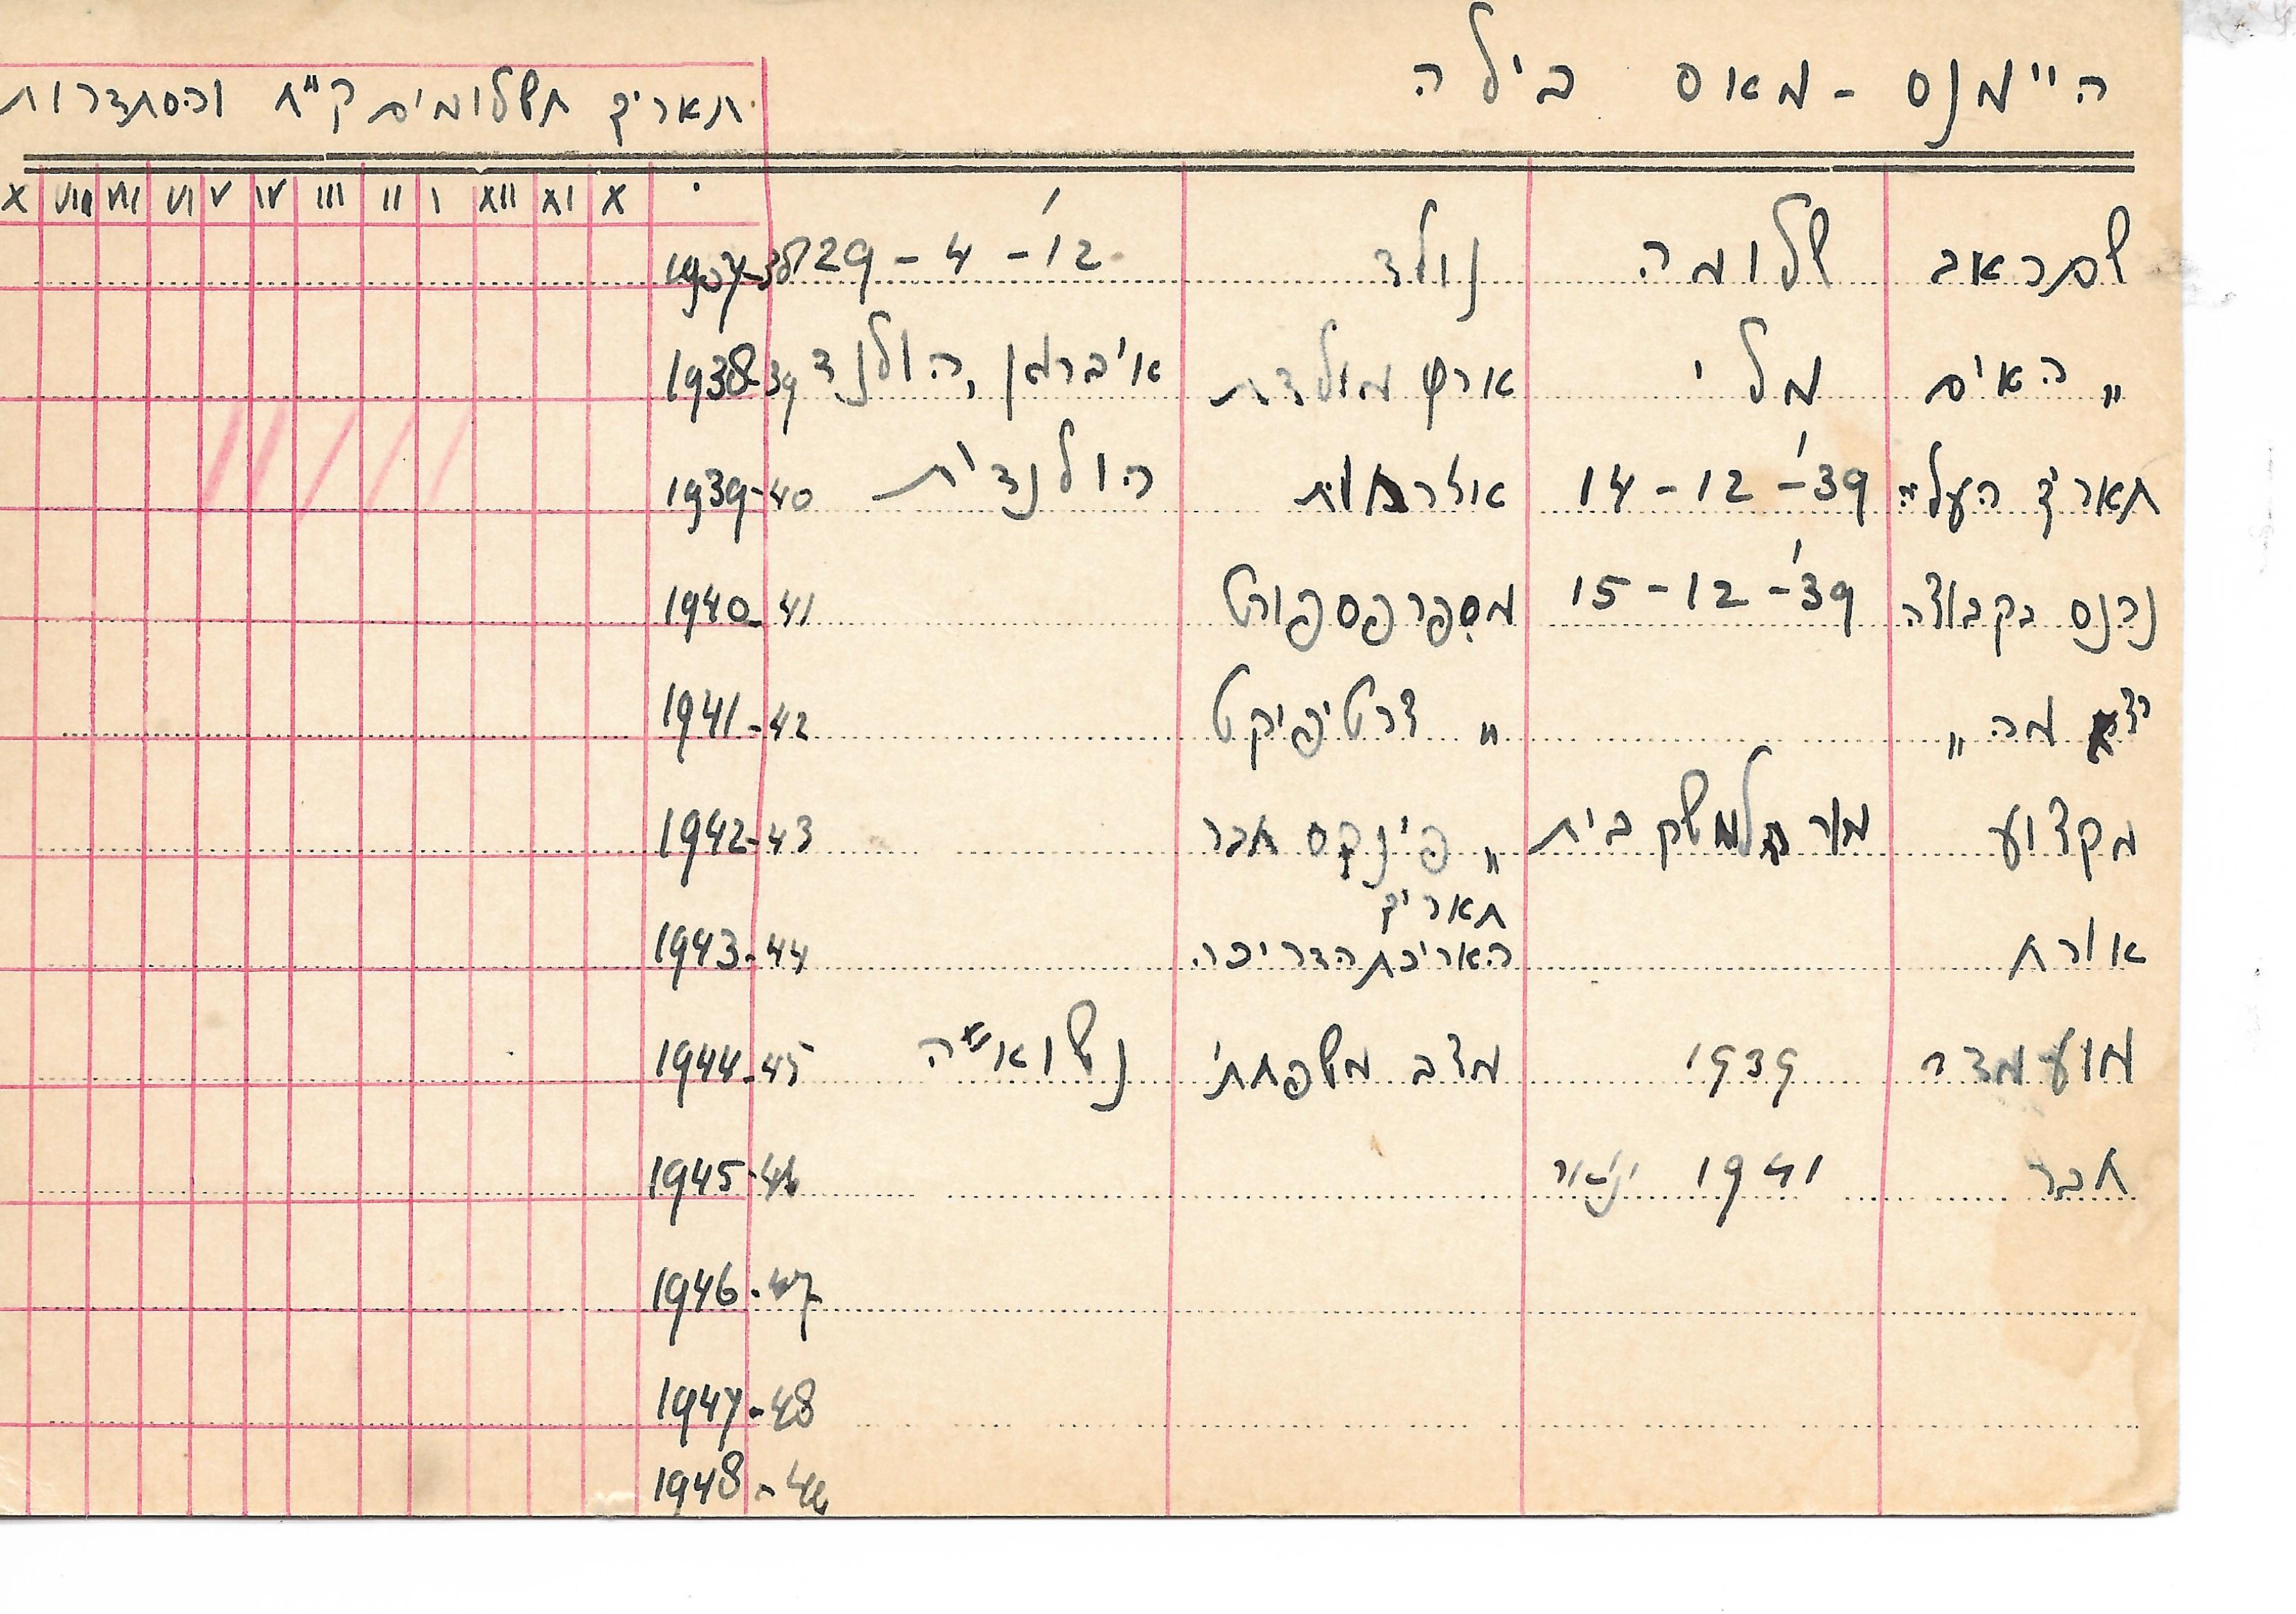 היימנס - מאס בילה
תאריך תשלומים ק"ח והסתדרות
X XI XII I II III IV V VI VII VIII X
שם האב שלומה נולד 29 - 4 - '12 1937-38
" האים מלי ארץ מולדת הולנד 1938-39
תאריך העליי 14 - 12 - '39 אזרחות הולנדית 1939-40
נכנס בקבוצה 15 - 12 - '39 מספר פספורט 1940-41
מה " " צרטיפיקט 1941-42
מקצוע משק בית " פינקס חבר 1942-43
תאריך
אורח הארכת הדריכה 1943-44
מועמדה 1939 מצב משפחתי נשואה 1944-45
חבר 1941 ינואר 1945-46
1946-47
1947-48
1948-49